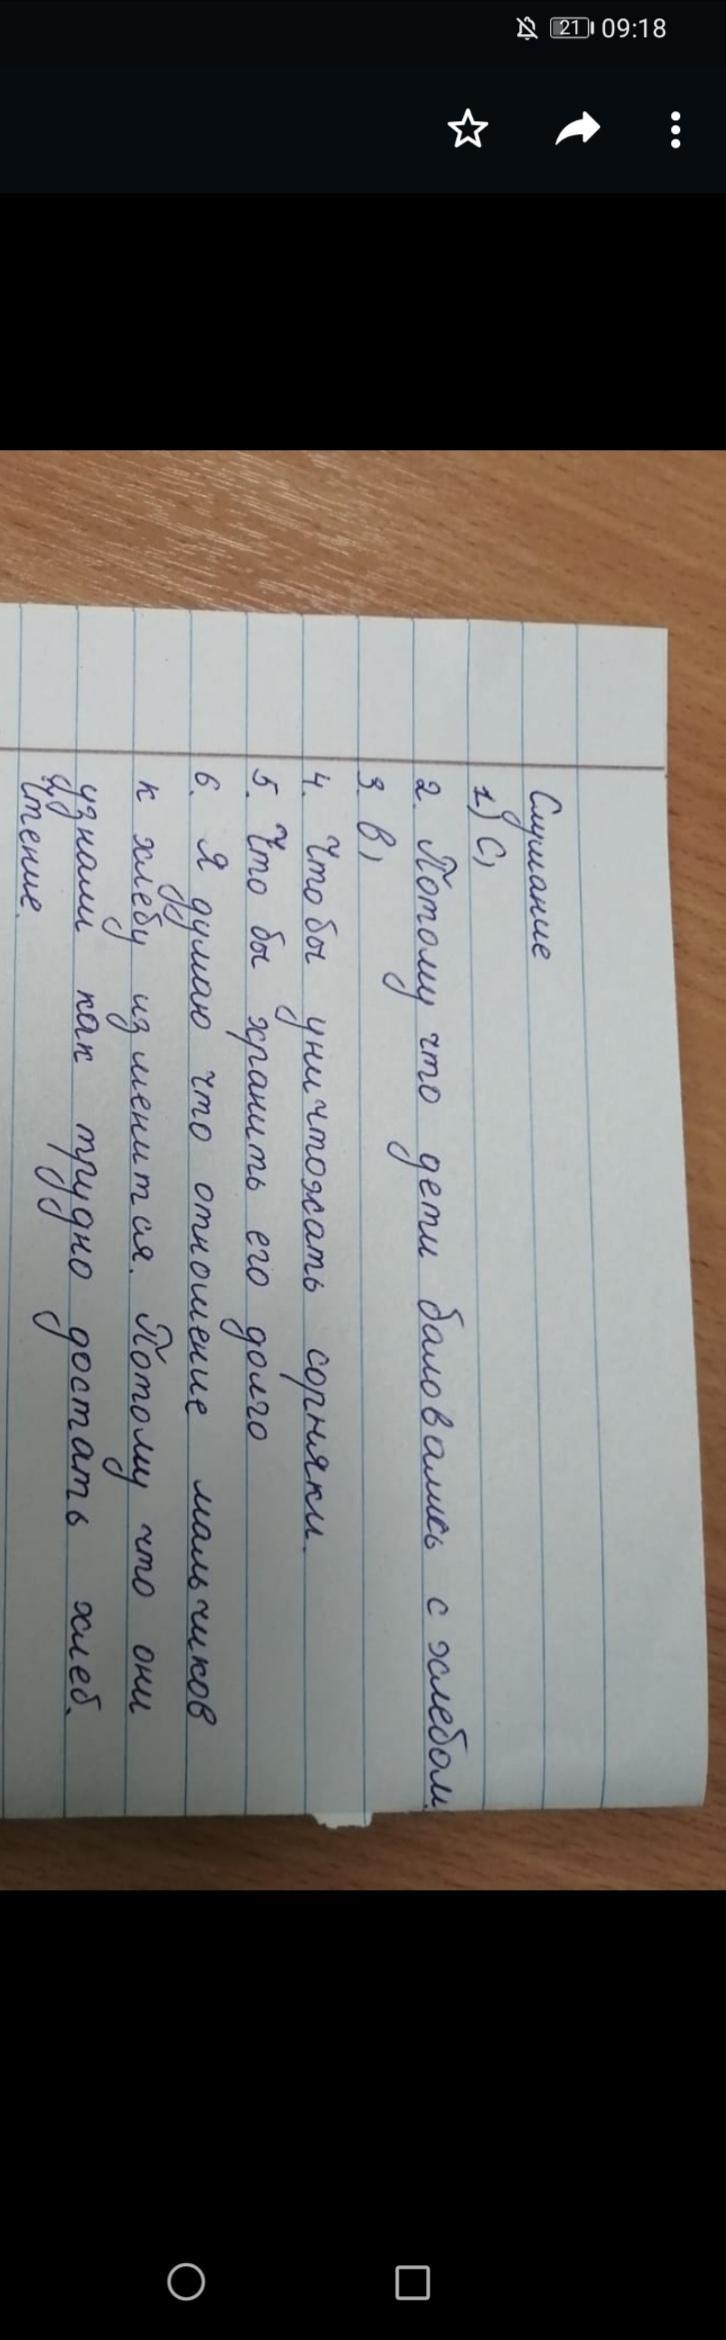 21 09:18
Слушание
1) С)
2. Потому что дети баловались с хлебом.
3. В)
4. Что бы уничтожать сорняки.
5. Что бы хранить его долго
6. Я думаю что отношение мальчиков
к хлебу изменится. Потому что они
узнали как трудно достать хлеб.
Чтение.